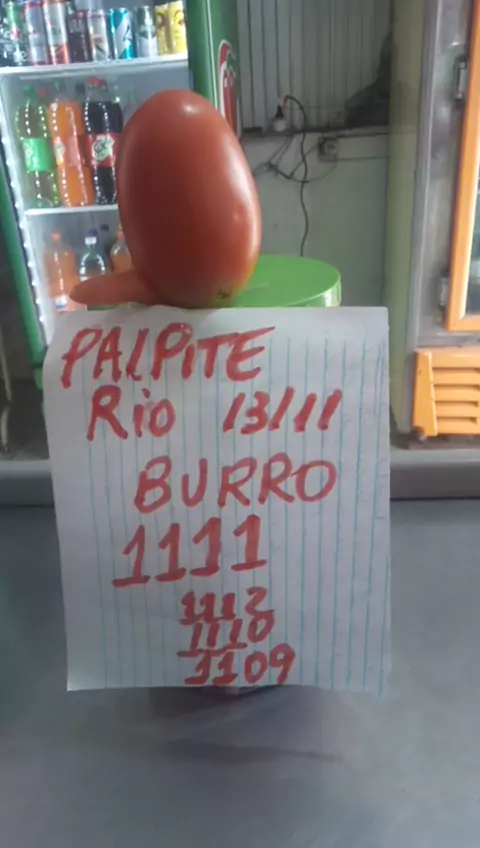 PALPITE
Rio 13/11
BURRO
1111
1112
1110
1109